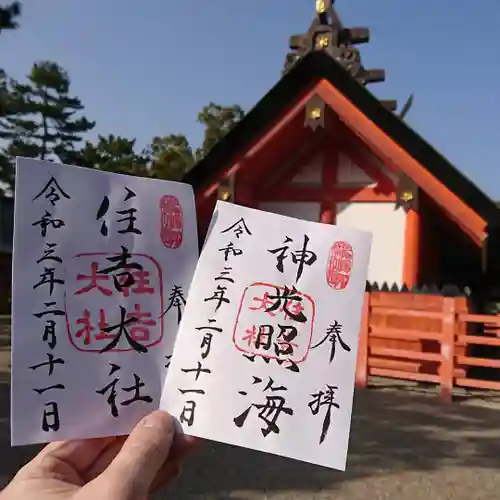 奉
住吉大社
住吉
大社
令和三年二月十一日
奉拝
神光照海
住吉
大社
令和三年二月十一日